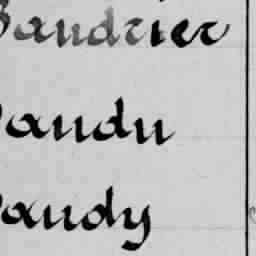 Baudrier
Baudu
Baudy